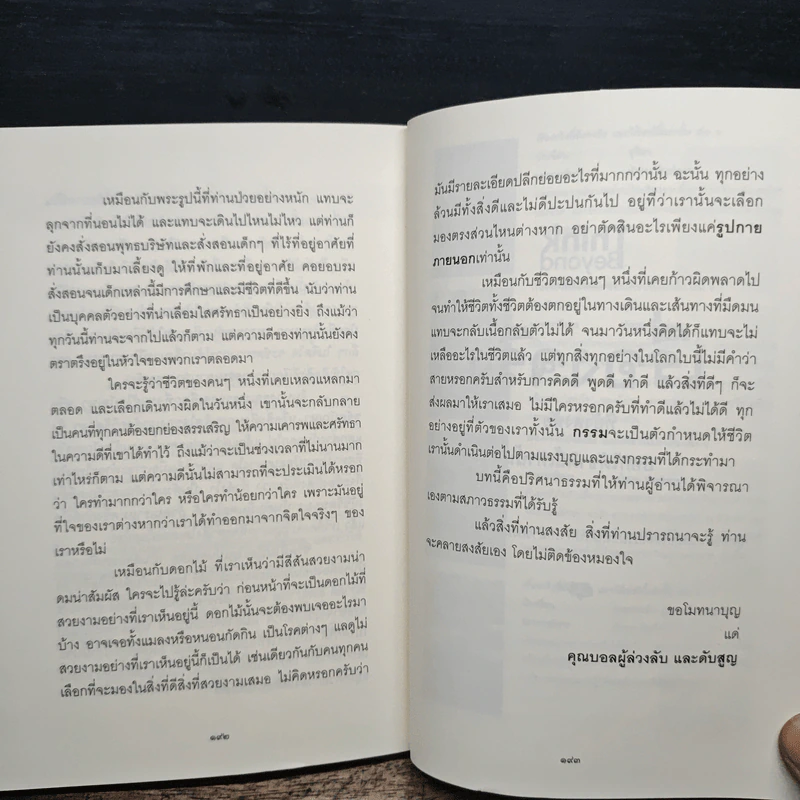 เหมือนกับพระรูปนี้ที่ท่านป่วยอย่างหนัก แทบจะ
ลุกจากที่นอนไม่ได้ และแทบจะเดินไปไหนไม่ไหว แต่ท่านก็
ยังคงสั่งสอนพุทธบริษัทและสั่งสอนเด็กๆ ที่ไร้ที่อยู่อาศัยที่
ท่านนั้นเก็บมาเลี้ยงดู ให้ที่พักและที่อยู่อาศัย คอยอบรม
สั่งสอนจนเด็กเหล่านี้มีการศึกษาและมีชีวิตที่ดีขึ้น นับว่าท่าน
เป็นบุคคลตัวอย่างที่น่าเลื่อมใสศรัทธาเป็นอย่างยิ่ง ถึงแม้ว่า
ทุกวันนี้ท่านจะจากไปแล้วก็ตาม แต่ความดีของท่านนั้นยังคง
ตราตรึงอยู่ในหัวใจของพวกเราตลอดมา
ใครจะรู้ว่าชีวิตของคนๆ หนึ่งที่เคยเหลวแหลกมา
ตลอด และเลือกเดินทางผิดในวันหนึ่ง เขานั้นจะกลับกลาย
เป็นคนที่ทุกคนต้องยกย่องสรรเสริญ ให้ความเคารพและศรัทธา
ในความดีที่เขาได้ทำไว้ ถึงแม้ว่าจะเป็นช่วงเวลาที่ไม่นานมาก
เท่าไหร่ก็ตาม แต่ความดีนั้นไม่สามารถที่จะประเมินได้หรอก
ว่า ใครทำมากกว่าใคร หรือใครทำน้อยกว่าใคร เพราะมันอยู่
ที่ใจของเราต่างหากว่าเราได้ทำออกมาจากจิตใจจริงๆ ของ
เราหรือไม่
เหมือนกับดอกไม้ ที่เราเห็นว่ามีสีสันสวยงามน่า
ดมน่าสัมผัส ใครจะไปรู้ล่ะครับว่า ก่อนหน้าที่จะเป็นดอกไม้ที่
สวยงามอย่างที่เราเห็นอยู่นี้ ดอกไม้นั้นจะต้องพบเจออะไรมา
บ้าง อาจเจอทั้งแมลงหรือหนอนกัดกิน เป็นโรคต่างๆ แลดูไม่
สวยงามอย่างที่เราเห็นอยู่นี้ก็เป็นได้ เช่นเดียวกันกับคนทุกคน
เลือกที่จะมองในสิ่งที่ดีสิ่งที่สวยงามเสมอ ไม่คิดหรอกครับว่า
๑๙๒
มันมีรายละเอียดปลีกย่อยอะไรที่มากกว่านั้น ฉะนั้น ทุกอย่าง
ล้วนมีทั้งสิ่งดีและไม่ดีปะปนกันไป อยู่ที่ว่าเรานั้นจะเลือก
มองตรงส่วนไหนต่างหาก อย่าตัดสินอะไรเพียงแค่รูปกาย
ภายนอกเท่านั้น
เหมือนกับชีวิตของคนๆ หนึ่งที่เคยก้าวผิดพลาดไป
จนทำให้ชีวิตทั้งชีวิตต้องตกอยู่ในทางเดินและเส้นทางที่มืดมน
แทบจะกลับเนื้อกลับตัวไม่ได้ จนมาวันหนึ่งคิดได้ก็แทบจะไม่
เหลืออะไรในชีวิตแล้ว แต่ทุกสิ่งทุกอย่างในโลกใบนี้ไม่มีคำว่า
สายหรอกครับสำหรับการคิดดี พูดดี ทำดี แล้วสิ่งที่ดีๆ ก็จะ
ส่งผลมาให้เราเสมอ ไม่มีใครหรอกครับที่ทำดีแล้วไม่ได้ดี ทุก
อย่างอยู่ที่ตัวของเราทั้งนั้น กรรมจะเป็นตัวกำหนดให้ชีวิต
เรานั้นดำเนินต่อไปตามแรงบุญและแรงกรรมที่ได้กระทำมา
บทนี้คือปริศนาธรรมที่ให้ท่านผู้อ่านได้พิจารณา
เองตามสภาวธรรมที่ได้รับรู้
แล้วสิ่งที่ท่านสงสัย สิ่งที่ท่านปรารถนาจะรู้ ท่าน
จะคลายสงสัยเอง โดยไม่ติดข้องหมองใจ
ขอโมทนาบุญ
แด่
คุณบอลผู้ล่วงลับ และดับสูญ
๑๙๓